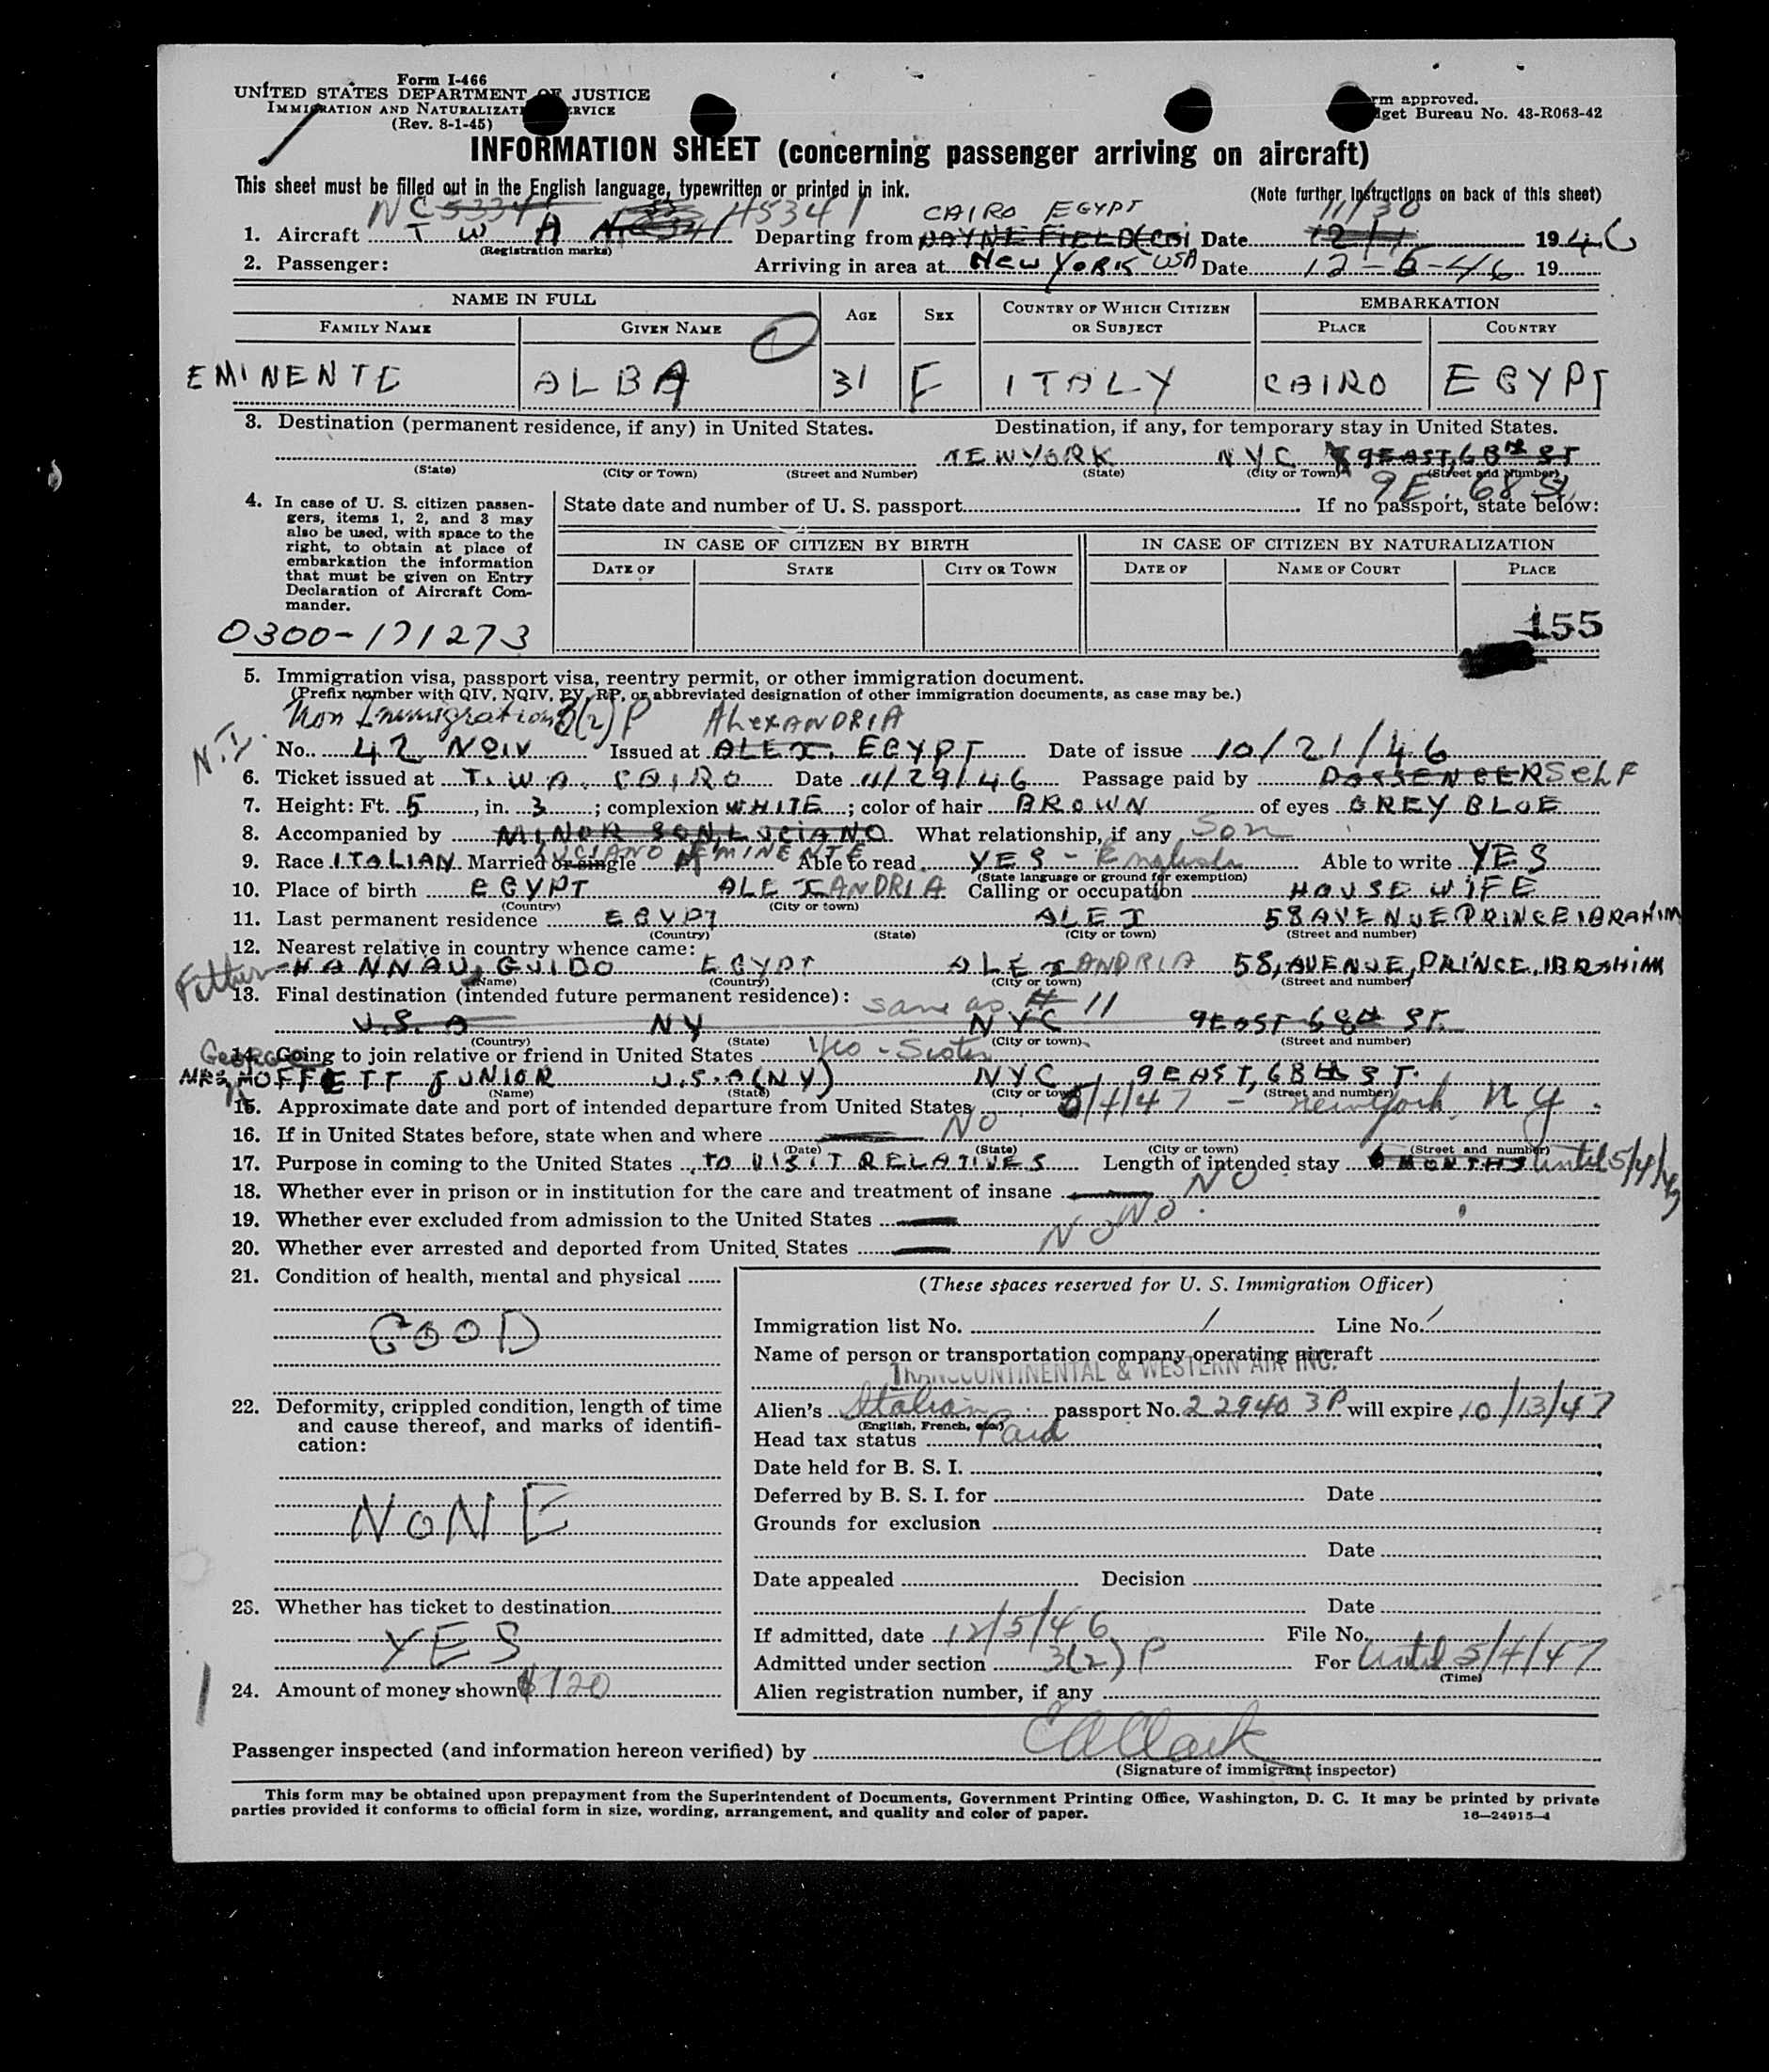 Form I-466
UNITED STATES DEPARTMENT OF JUSTICE
IMMIGRATION AND NATURALIZATION SERVICE
(Rev. 8-1-45)
rm approved.
get Bureau No. 43-R063-42
INFORMATION SHEET (concerning passenger arriving on aircraft)
This sheet must be filled out in the English language, typewritten or printed in ink.
(Note further instructions on back of this sheet)
NC 45341 CAIRO EGYPT 11/30
1. Aircraft T W A Departing from PAYNE FIELD Date 12/1 1946
(Registration marks)
2. Passenger: Arriving in area at New YORK USA Date 12-5-46 19
NAME IN FULL AGE SEX COUNTRY OF WHICH CITIZEN OR SUBJECT EMBARKATION
FAMILY NAME GIVEN NAME PLACE COUNTRY
EMINENTE ALBA 31 F ITALY CAIRO EGYPT
3. Destination (permanent residence, if any) in United States. Destination, if any, for temporary stay in United States.
NEW YORK NYC 9 EAST, 68th ST
(State) (City or Town) (Street and Number) (State) (City or Town) (Street and Number)
9 E. 68 St
4. In case of U. S. citizen passengers, items 1, 2, and 3 may also be used, with space to the right, to obtain at place of embarkation the information that must be given on Entry Declaration of Aircraft Commander.
State date and number of U. S. passport If no passport, state below:
IN CASE OF CITIZEN BY BIRTH IN CASE OF CITIZEN BY NATURALIZATION
DATE OF STATE CITY OR TOWN DATE OF NAME OF COURT PLACE
0300-171273
155
5. Immigration visa, passport visa, reentry permit, or other immigration document.
(Prefix number with QIV, NQIV, PV, RP, or abbreviated designation of other immigration documents, as case may be.)
Non Immigration 3(2) P ALEXANDRIA
N.I.
No. 42 NQIV Issued at ALEX. EGYPT Date of issue 10/21/46
6. Ticket issued at T.W.A. CAIRO Date 11/29/46 Passage paid by PASSENGER SELF
7. Height: Ft. 5, in. 3; complexion WHITE; color of hair BROWN of eyes GREY BLUE
8. Accompanied by MINOR SON, LUCIANO What relationship, if any Son
LUCIANO EMINENTE
9. Race ITALIAN Married or single M Able to read YES - English Able to write YES
(State language or ground for exemption)
10. Place of birth EGYPT ALEXANDRIA Calling or occupation HOUSE WIFE
(Country) (City or town)
11. Last permanent residence EGYPT ALEX 58 AVENUE PRINCE IBRAHIM
(Country) (State) (City or town) (Street and number)
12. Nearest relative in country whence came:
Father - HANNAU, GUIDO EGYPT ALEXANDRIA 58, AVENUE, PRINCE, IBRAHIM
(Name) (Country) (City or town) (Street and number)
13. Final destination (intended future permanent residence): same as # 11
U.S.A NY NYC 9 EAST 68th ST.
(Country) (State) (City or town) (Street and number)
14. Going to join relative or friend in United States c/o - Sister
George
MRS MOFFETT JUNIOR U.S.A (NY) NYC, 9 EAST, 68th ST.
(Name) (State) (City or town) (Street and number)
15. Approximate date and port of intended departure from United States 5/4/47 - New York, N Y.
16. If in United States before, state when and where NO
(Date) (State) (City or town) (Street and number)
17. Purpose in coming to the United States TO VISIT RELATIVES Length of intended stay 6 MONTHS Until 5/4/47
18. Whether ever in prison or in institution for the care and treatment of insane NO
19. Whether ever excluded from admission to the United States NO.
20. Whether ever arrested and deported from United States NO
21. Condition of health, mental and physical
GOOD
22. Deformity, crippled condition, length of time and cause thereof, and marks of identification:
NONE
23. Whether has ticket to destination
YES
24. Amount of money shown $120
(These spaces reserved for U. S. Immigration Officer)
Immigration list No. 1 Line No. 1
Name of person or transportation company operating aircraft
TRANSCONTINENTAL & WESTERN AIR INC.
Alien's Italian passport No. 229403P will expire 10/13/47
(English, French, etc.)
Head tax status Paid
Date held for B. S. I.
Deferred by B. S. I. for Date
Grounds for exclusion
Date
Date appealed Decision
Date
If admitted, date 12/5/46 File No.
Admitted under section 3(2) P For Until 5/4/47
(Time)
Alien registration number, if any
Passenger inspected (and information hereon verified) by C A Clark
(Signature of immigrant inspector)
This form may be obtained upon prepayment from the Superintendent of Documents, Government Printing Office, Washington, D. C. It may be printed by private
parties provided it conforms to official form in size, wording, arrangement, and quality and color of paper.
16—24915-4